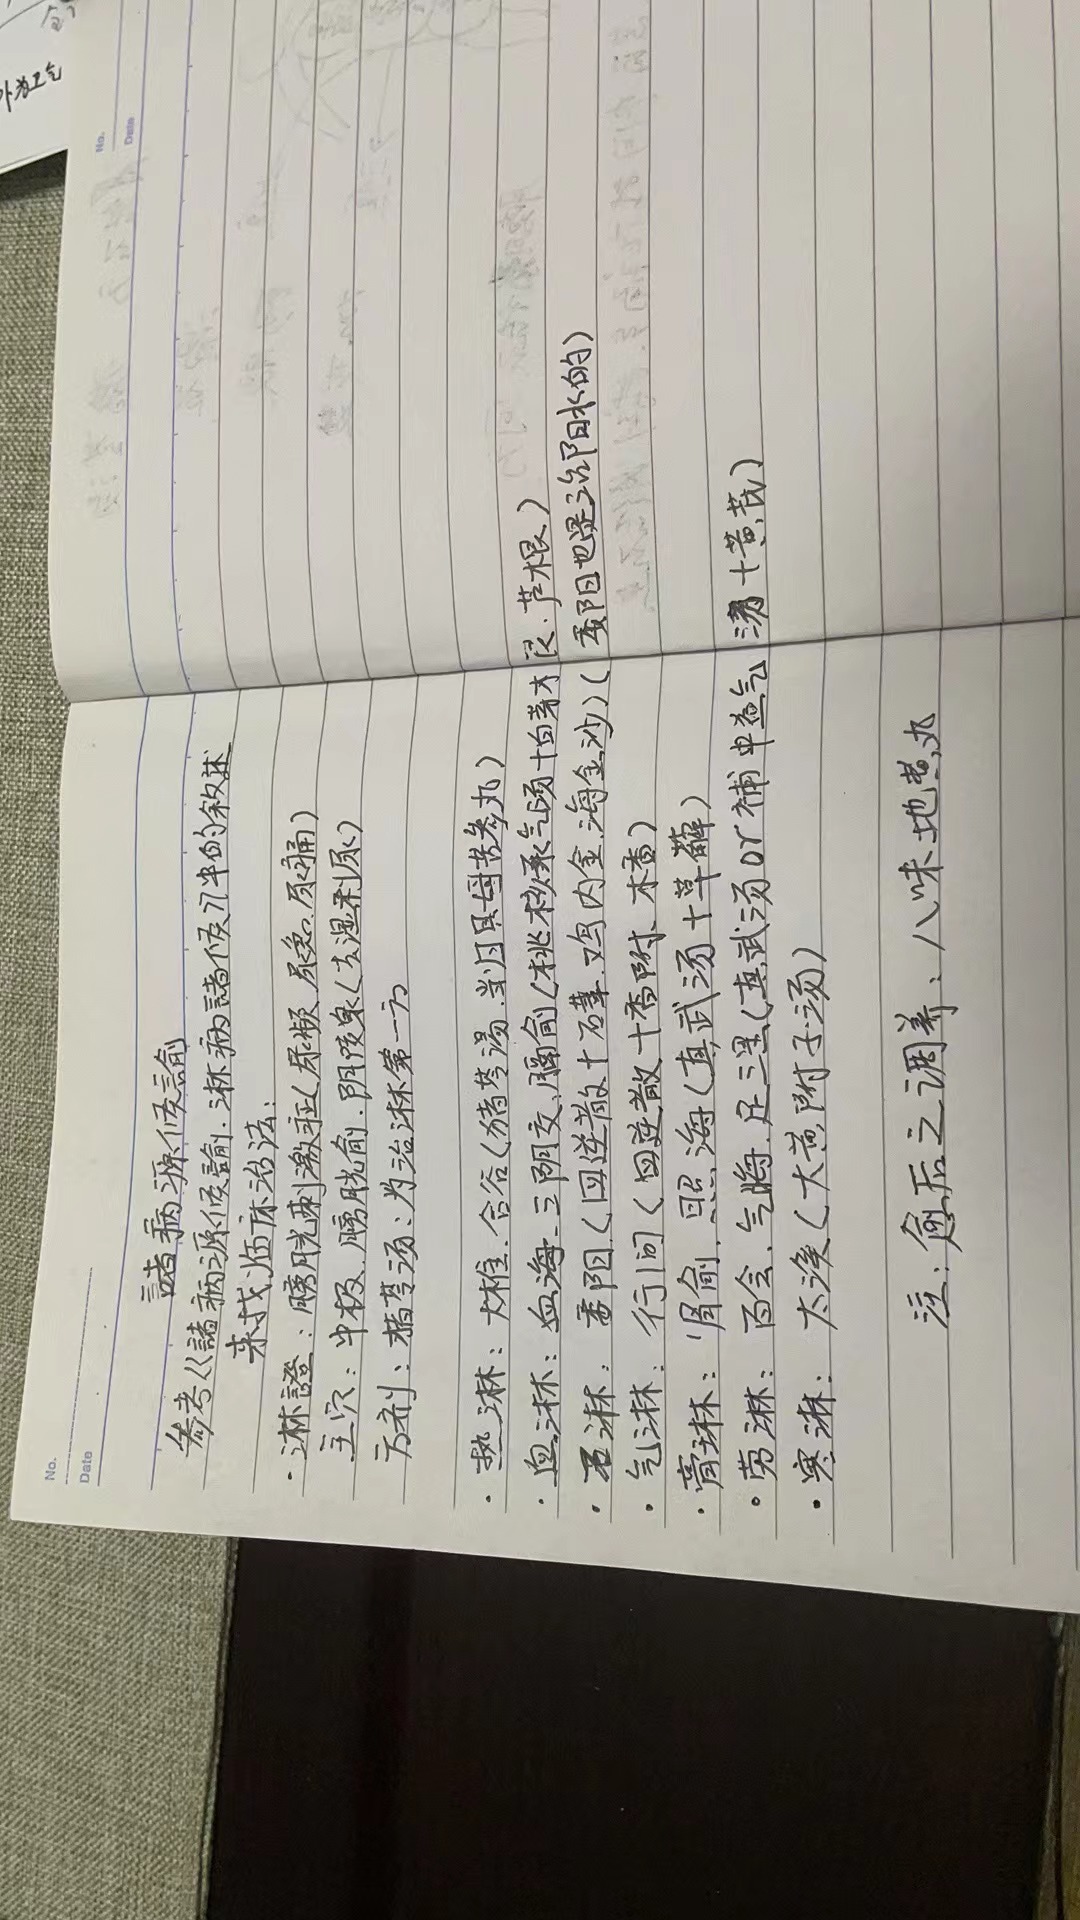 No.
Date
諸病源候諭
参考《諸病源候諭·淋病諸候》八半的敘述
来找临床治法:
·淋證:膀胱刺激征(尿频.尿急.尿痛)
主穴:中极.膀胱俞.阴陵泉(去湿利尿)
方剂:猪苓汤:为治淋第一方
·热淋:大椎.合谷(猪苓湯.当归贝母苦参丸)
·血淋:血海.三阴交.膈俞(桃核承气汤十白茅根.芦根)
·石淋:委阳(四逆散十石葦.鸡内金.海金沙)(委阳也是治阳水的)
·气淋:行间(四逆散十香附.木香)
·膏淋:肾俞.照海(真武汤十草薢)
·劳淋:百会.气海.足三里(真武汤or補中益气湯十黄芪)
·寒淋:太溪(大黄附子汤)
注:愈后之调养:八味地黄丸
No.
Date